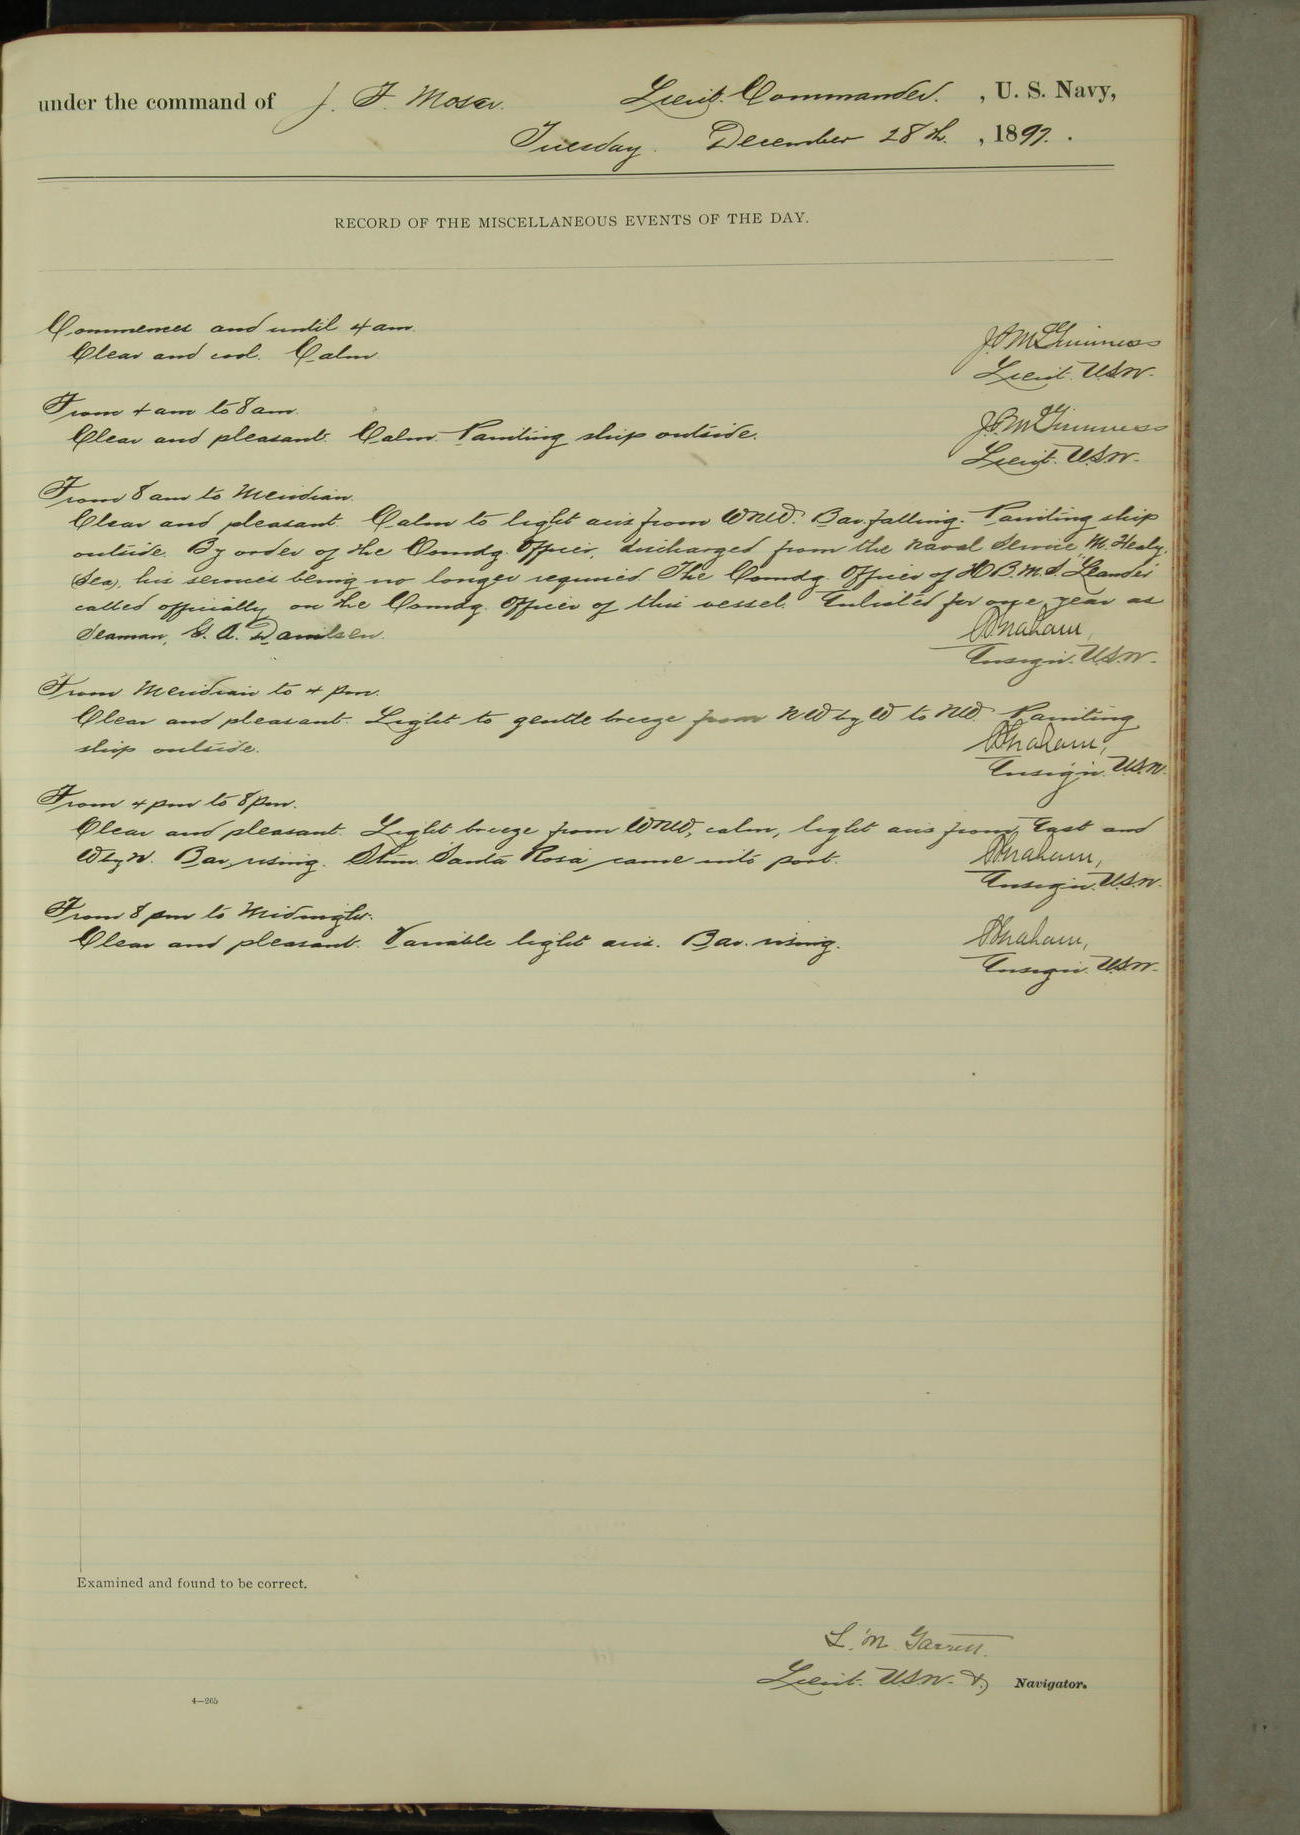 under the command of J. F. Moser. Lieut. Commander. , U. S. Navy,
Tuesday. December 28th. , 1897. .
RECORD OF THE MISCELLANEOUS EVENTS OF THE DAY.
Commences and until 4 am.
Clear and cool. Calm.
Lieut. U.S.N.
From 4 am to 8 am.
Clear and pleasant. Calm. Painting ship outside.
Lieut. U.S.N.
From 8 am to Meridian.
Clear and pleasant. Calm to light airs from WNW. Bar. falling. Painting ship
outside. By order of the Comdg. Officer, discharged from the Naval Service, M. Healy,
Sea, his services being no longer required. The Comdg. Officer of H.B.M.S. "Leander"
called officially on the Comdg. Officer of this vessel. Enlisted for one year as
Seaman, G. A. Danilsen.
Ensign. U.S.N.
From Meridian to 4 pm.
Clear and pleasant. Light to gentle breeze from NW by W to NW. Painting
ship outside.
Ensign. U.S.N.
From 4 pm to 8 pm.
Clear and pleasant. Light breeze from WNW, calm, light airs from East and
W by N. Bar. rising. Stmr. Santa Rosa came into port.
Ensign. U.S.N.
From 8 pm to Midnight.
Clear and pleasant. Variable light airs. Bar. rising.
Ensign. U.S.N.
Examined and found to be correct.
L. M. Garrett.
Lieut. U.S.N. & Navigator.
4—265